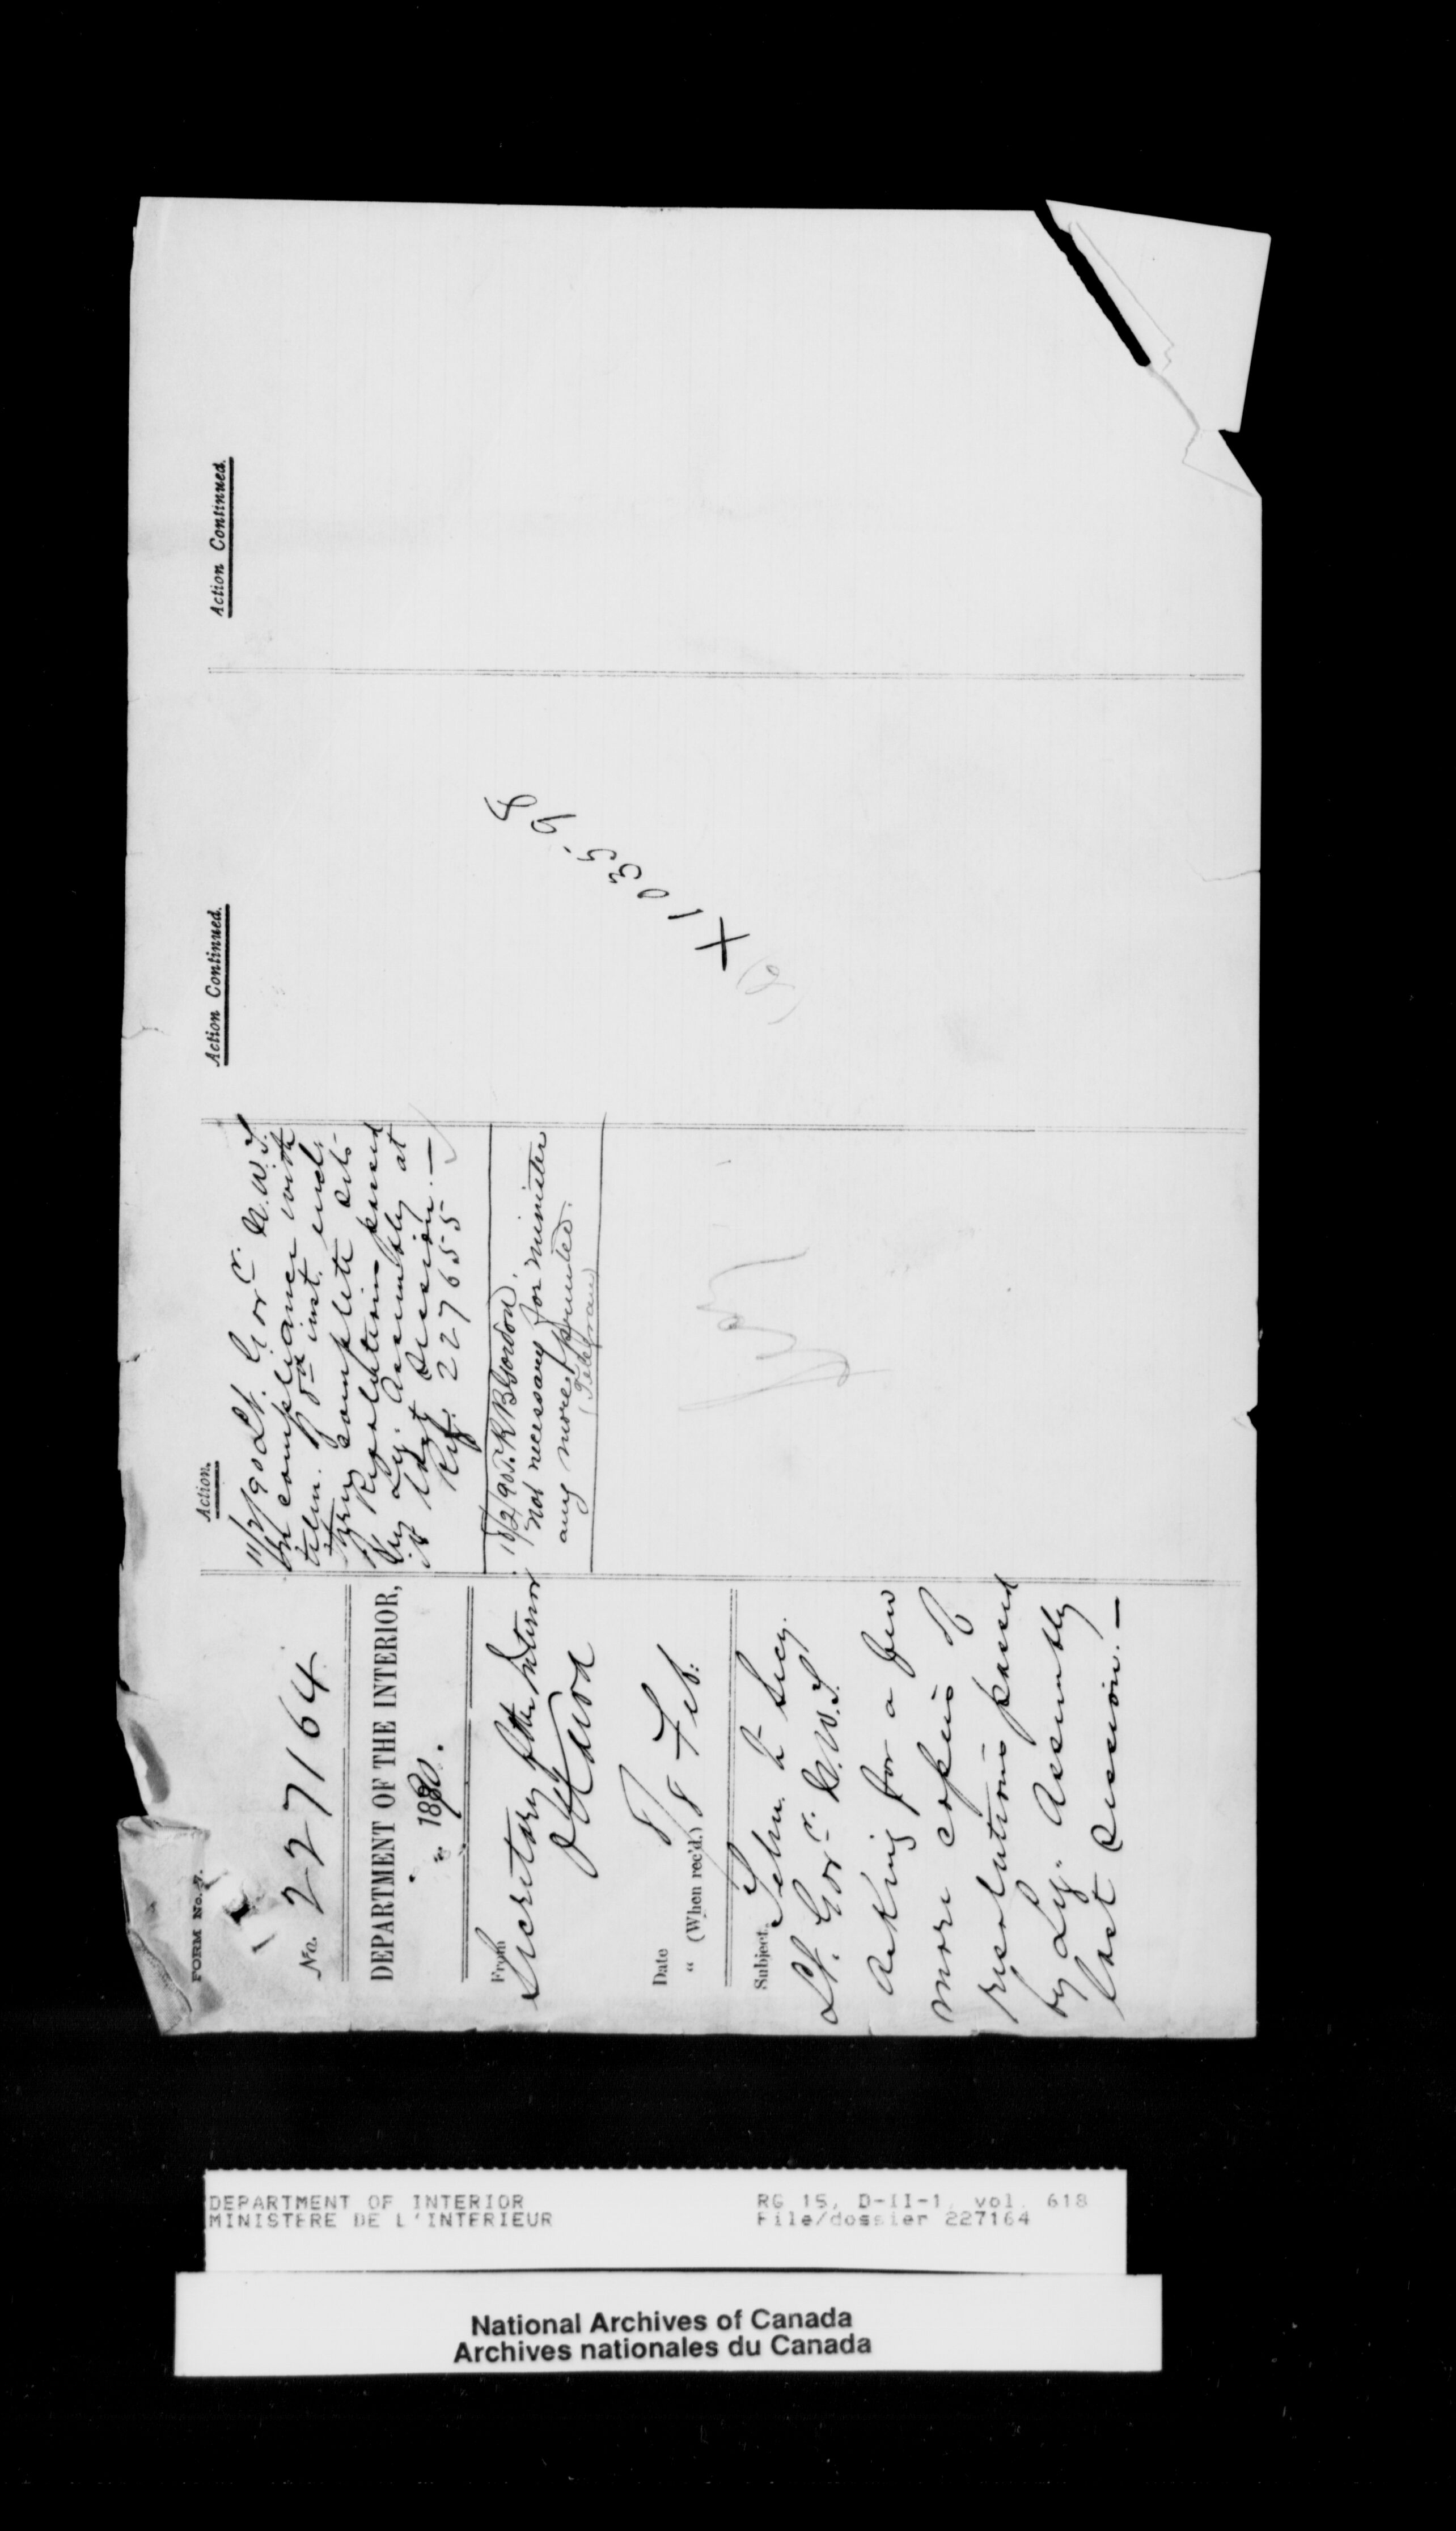 FORM No. 7.
No. 227164
DEPARTMENT OF THE INTERIOR,
1890.
From
Secretary of the Interior
Ottawa
Date 8
" (When rec'd.) 8 Feb:
Subject.
Telm. to Secy.
Lt. Govr. N.W.T.
asking for a few
more copies of
resolutions passed
by Leg. Assembly
last session. —
Action.
11/2/90 Lt. Govr. N.W.T.
In compliance with
telm. of 8th inst. encl.
three complete sets
of Resolutions passed
by Leg. Assembly at
its last session. —
Ref. 227655
18/2/90 T. R B Gordon.
Not necessary for minister
any more printed.
(Telegram)
Action Continued.
X 103598
(2)
Action Continued.
DEPARTMENT OF INTERIOR
MINISTERE DE L'INTERIEUR
RG 15, D-II-1, vol. 618
File/dossier 227164
National Archives of Canada
Archives nationales du Canada